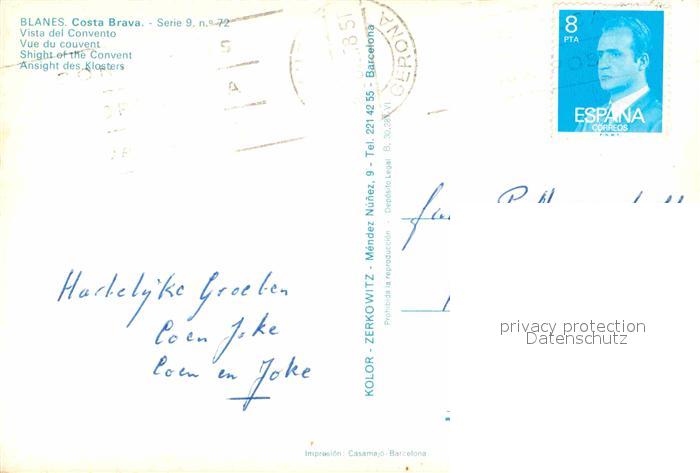 BLANES. Costa Brava. - Serie 9, n.º 72
Vista del Convento
Vue du couvent
Shight of the Convent
Ansight des Klosters
GERONA
8
PTA
ESPAÑA
CORREOS
F.N.M.T.
KOLOR - ZERKOWITZ - Méndez Núñez, 9 - Tel. 221 42 55 - Barcelona
Prohibida la reproducción - Depósito Legal B. 30.28 VI
Fam
Hartelijke Groeten
Coen Joke
Coen en Joke
privacy protection
Datenschutz
Impresión: Casamajó-Barcelona